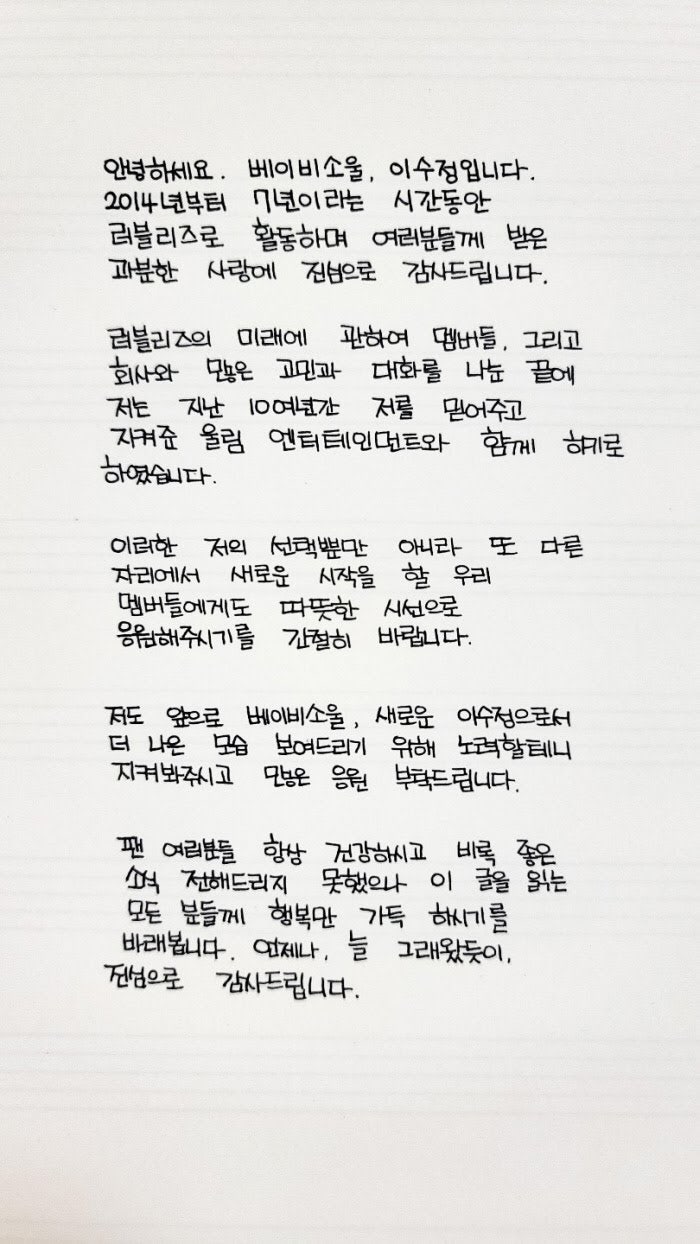 안녕하세요. 베이비소울, 이수정입니다.
2014년부터 7년이라는 시간동안
러블리즈로 활동하며 여러분들께 받은
과분한 사랑에 진심으로 감사드립니다.
러블리즈의 미래에 관하여 멤버들, 그리고
회사와 많은 고민과 대화를 나눈 끝에
저는 지난 10여년간 저를 믿어주고
지켜준 울림 엔터테인먼트와 함께 하기로
하였습니다.
이러한 저의 선택뿐만 아니라 또 다른
자리에서 새로운 시작을 할 우리
멤버들에게도 따뜻한 시선으로
응원해주시기를 간절히 바랍니다.
저도 앞으로 베이비소울, 새로운 이수정으로서
더 나은 모습 보여드리기 위해 노력할테니
지켜봐주시고 많은 응원 부탁드립니다.
팬 여러분들 항상 건강하시고 비록 좋은
소식 전해드리지 못했으나 이 글을 읽는
모든 분들께 행복만 가득 하시기를
바래봅니다. 언제나, 늘 그래왔듯이,
진심으로 감사드립니다.